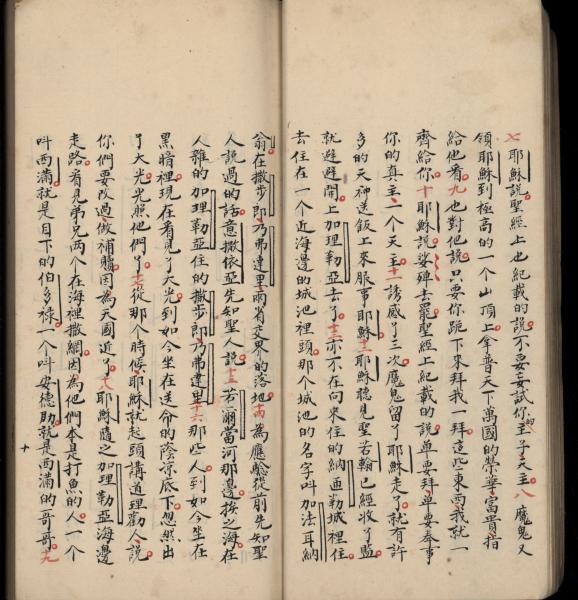 七耶穌說聖經上也紀載的說不要妄試你的主子天主八魔鬼又
領耶穌到極高的一個山頂上拿普天下萬國的榮華富貴指
給他看九也對他說只要你跪下來拜我一拜這些東西我就一
齊給你十耶穌說娑殫去罷聖經上紀載的說单要拜单要奉事
你的真主一個天主十一誘感了三次魔鬼留了耶穌走了就有許
多的天神送飯上來服事耶穌十二耶穌聽見若翰已經收了監
就避避開上加理勒亞去了十三亦不在向來住的納匝勒城裡住
去住在一個近海邊的城池裡頭那個城池的名字叫加法耳納
翁在撒步郎乃弗達里兩省交界的落地十四為應驗從前先知聖
人說過的話意撒依亞先知聖人說十五若溺當河那邊挨之海在
人雜的加理勒亞住的撒步郎乃弗達里十六那些人到如今坐在
黑暗裡現在看見了大光到如今坐在送命的陰凉底下忽然出
了大光光照他們了十七從那個時候耶穌就起頭講道理勸人說
你們要改過做補贖因為天國近了十八耶穌隨之加理勒亞海邊
走路看見弟兄两個在海裡撒網因為他們本是打魚的人一個
叫西滿就是目下的伯多祿一個叫安德肋就是西滿的哥哥十九
十